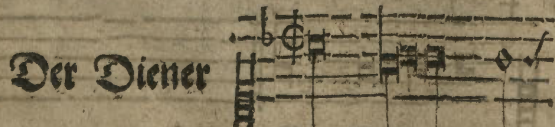 Der Diener